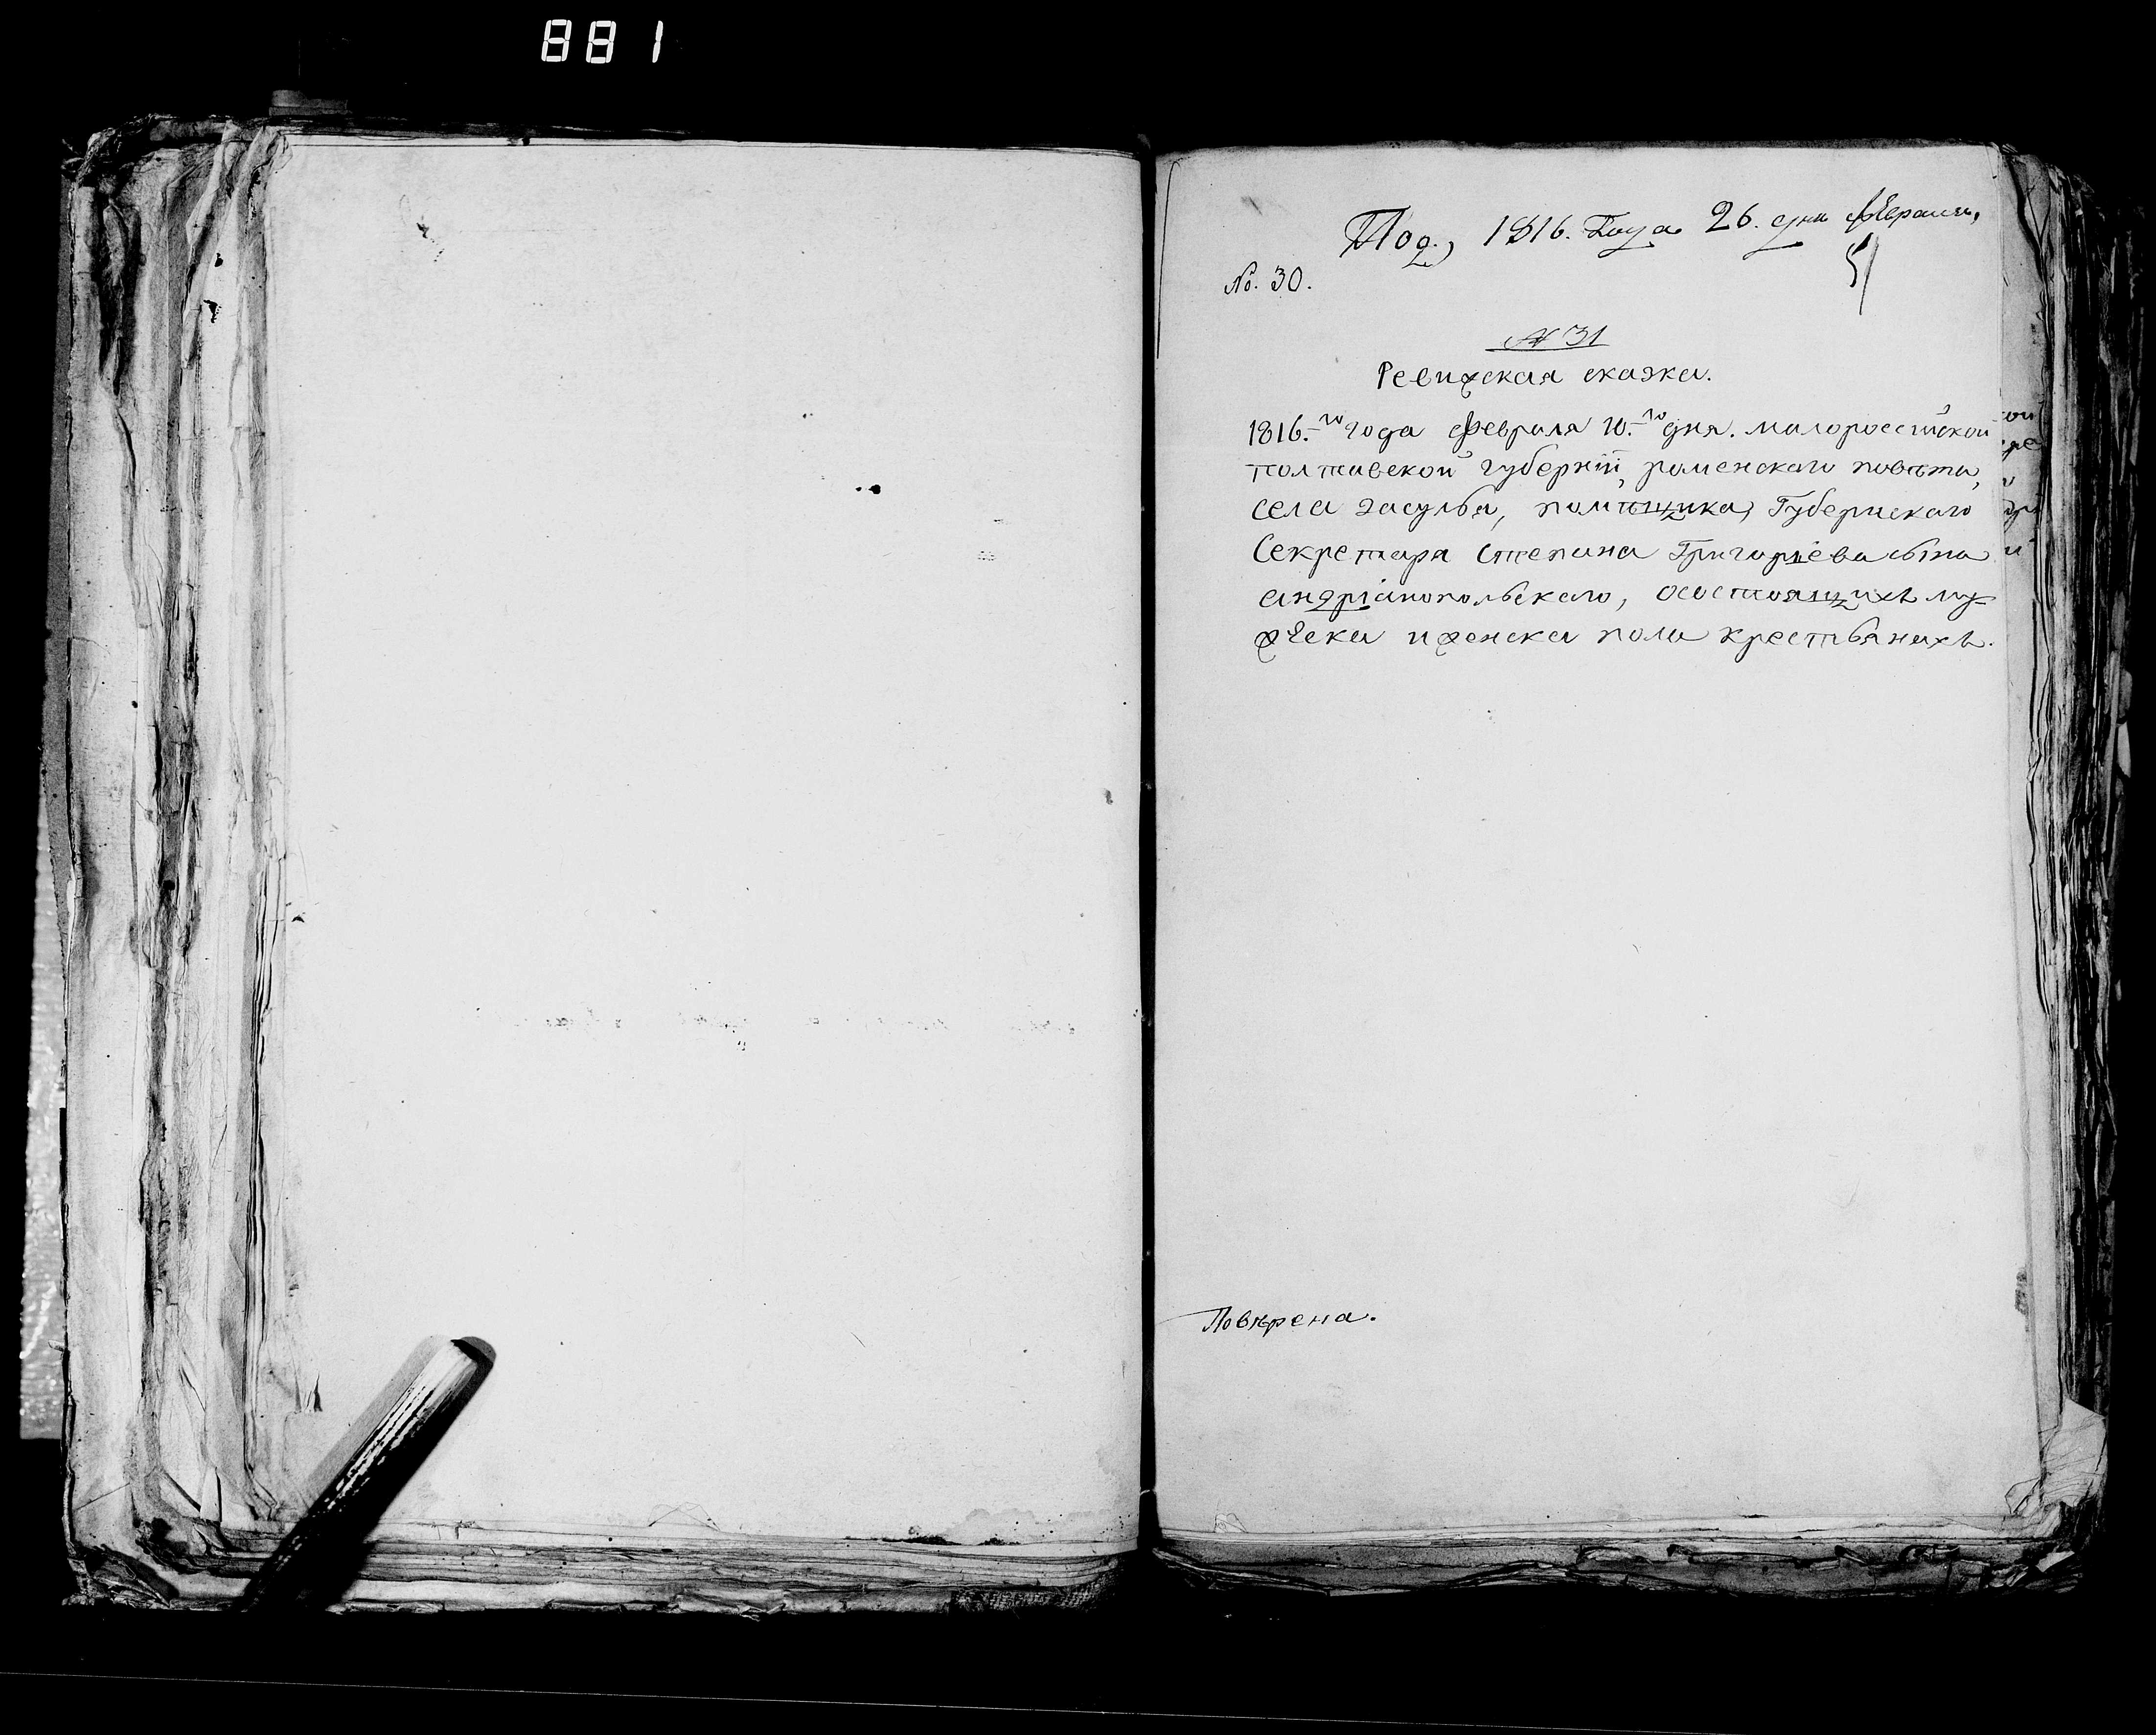 881
Под, 1816. Года 26. дня февраля,
No. 30.
51
№ 31
Ревижская сказка.
1816.-го года февраля 10.-го дня. малороссійской
полтавской губерніи, роменского повѣта,
села засулья, помѣщика, Губернскаго
Секретаря Степана Григорієва сына
андріанопольского, осостоящихъ му-
жеска и женска пола крестьянахъ.
Повѣрена.